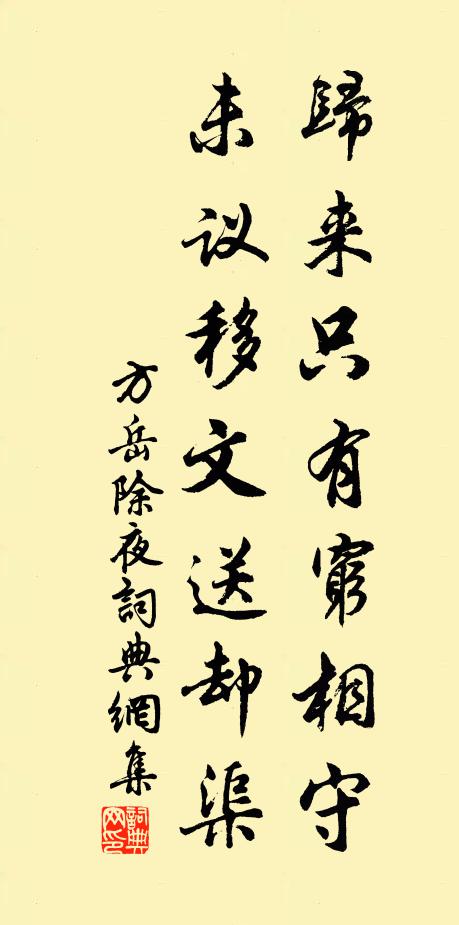 歸来只有窮相守
未议移文送却渠
方岳除夜詞典網集
詞典網印